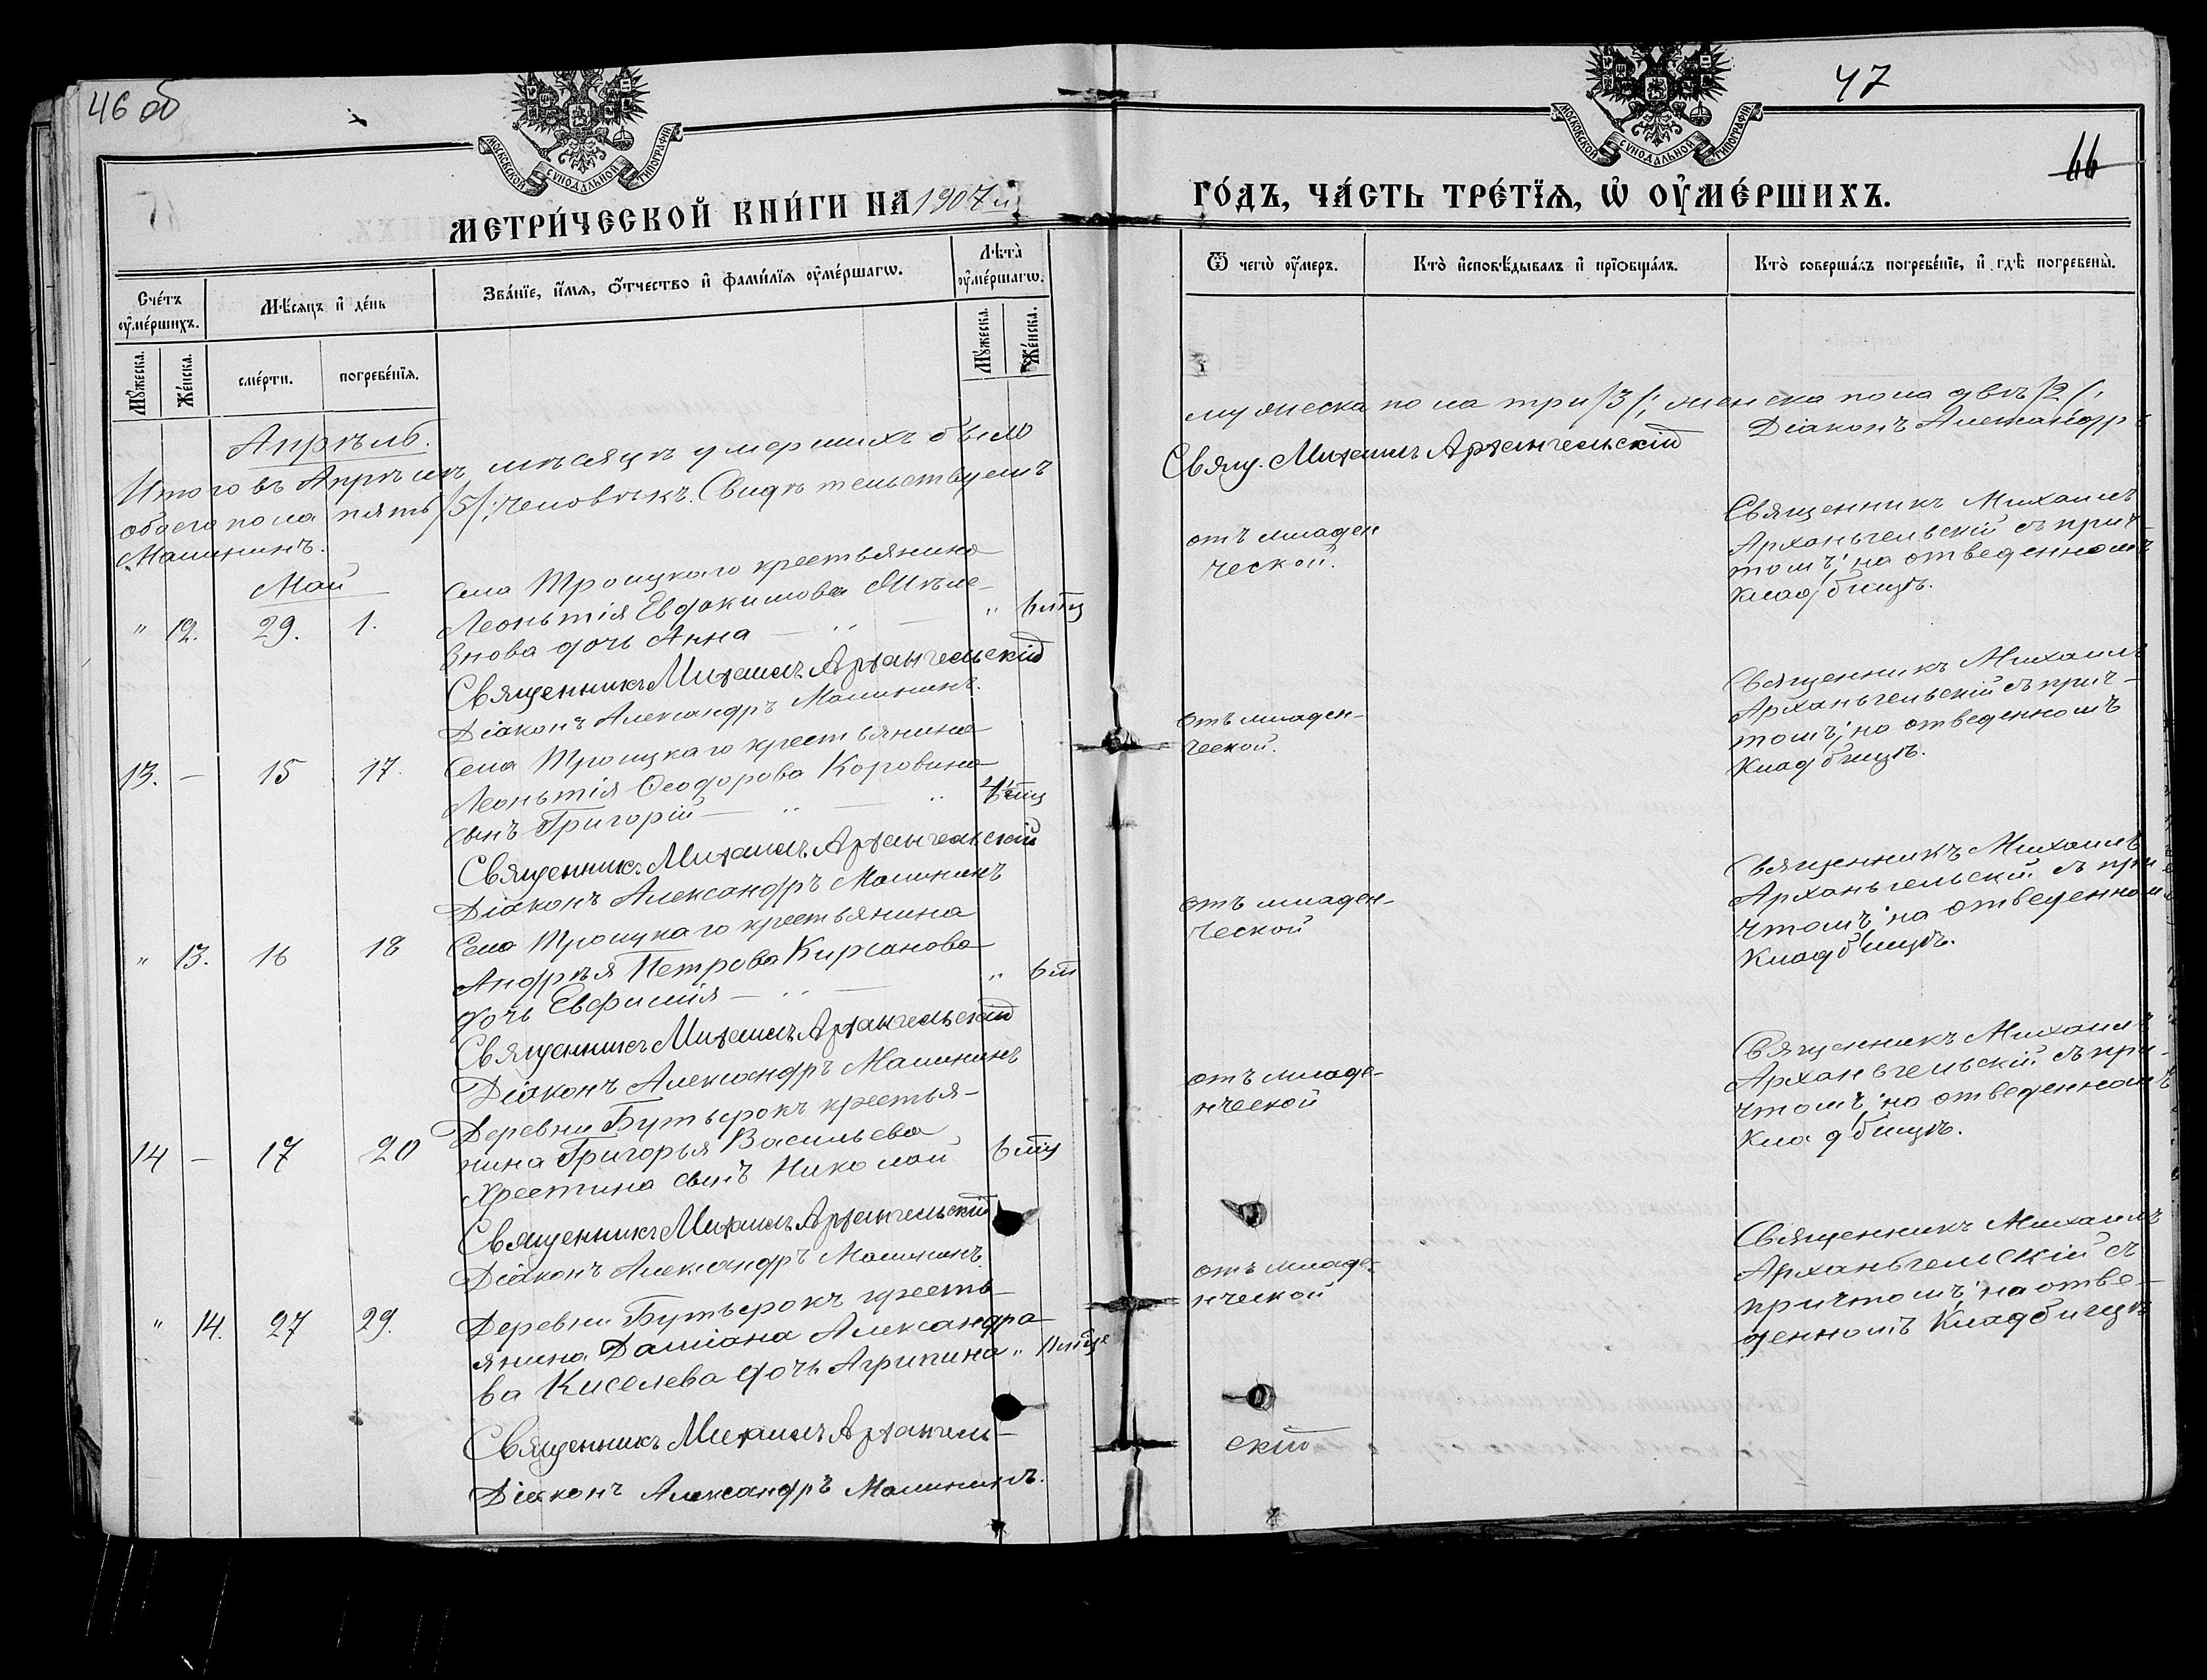 46 об
47
66
МОСКОВСКОЙ СѴНОДАЛЬНОЙ ТИПОГРАФІИ
МОСКОВСКОЙ СѴНОДАЛЬНОЙ ТИПОГРАФІИ
МЕТРИ́ЧЕСКОЙ КНИ́ГИ НА 1907 й
ГО́ДЪ, ЧА́СТЬ ТРЕ́ТЇѦ, Ѡ҆ ОУ҆МЕ́РШИХЪ.
Сче́тъ оу҆ме́ршихъ.
Мѣ́сяцъ и҆ де́нь
Зва́нїе, и҆́мѧ, ѻ҆́тчество и҆ фами́лїѧ оу҆ме́ршагѡ.
Лѣта̀ оу҆ме́ршагѡ.
Ѿ чегѡ̀ оу҆́меръ.
Кто̀ и҆сповѣ́дывалъ и҆ прїѡбща́лъ.
Кто̀ соверша́лъ погребе́нїе, и҆ гдѣ̀ погребены̀.
Мꙋ́жеска. Же́нска. сме́рти. погребе́нїѧ. Мꙋ́жеска. Же́нска.
Апрѣль.
Итого въ Апрѣлѣ мѣсяцѣ умершихъ было мужеска пола три /3/; женска пола двѣ /2/;
обоего пола пять /5/; человѣкъ. Свидѣтельствуемъ Свящ. Михаилъ Архангельскій Діаконъ Александръ
Малининъ.
Май
" 12. 29. 1.
Села Троицкаго крестьянина
Леонтія Евдокимова
дочь Анна — " —
отъ младен
ческой.
Священникъ Михаилъ
Арханьгельскій съ прич-
томъ; на отведенномъ
кладбищѣ.
Священникъ Михаилъ Архангельскій
Діаконъ Александръ Малининъ.
13. — 15 17.
Села Троицкаго крестьянина
Леоньтія Ѳеодорова Коровина
сынъ Григорій — " — "
отъ младен-
ческой.
Священникъ Михаилъ
Арханьгельскій съ прич-
томъ; на отведенномъ
Кладбищѣ.
Священникъ Михаилъ Архангельскій
Діаконъ Александръ Малининъ
" 13. 16 18
Села Троицкаго крестьянина
Андрѣя Петрова Кирсанова
дочь Евфимія — " — "
отъ младен-
ческой
Священникъ Михаилъ
Арханьгельскій съ при
чтомъ; на отведенном
Кладбищѣ.
Священникъ Михаилъ Архангельскій
Діаконъ Александръ Малининъ
14 — 17 20
Деревни Бутырокъ крестья-
нина Григорья Васильева
Хрестина сынъ Николай
отъ младе-
нческой
Священникъ Михаилъ
Арханьгельскій съ при-
чтомъ; на отведенномъ
Кладбищѣ.
Священникъ Михаилъ Архангельскій
Діаконъ Александръ Малининъ
" 14. 27 29.
Деревни Бутырокъ кресть-
янина Даміана Александро-
ва Киселева дочь Агрипина "
отъ младе-
нческой
Священникъ Михаилъ
Арханьгельскій съ
причтомъ; на отве-
денномъ Кладбищѣ
Священникъ Михаилъ Архангель-
скій
Діаконъ Александръ Малининъ.